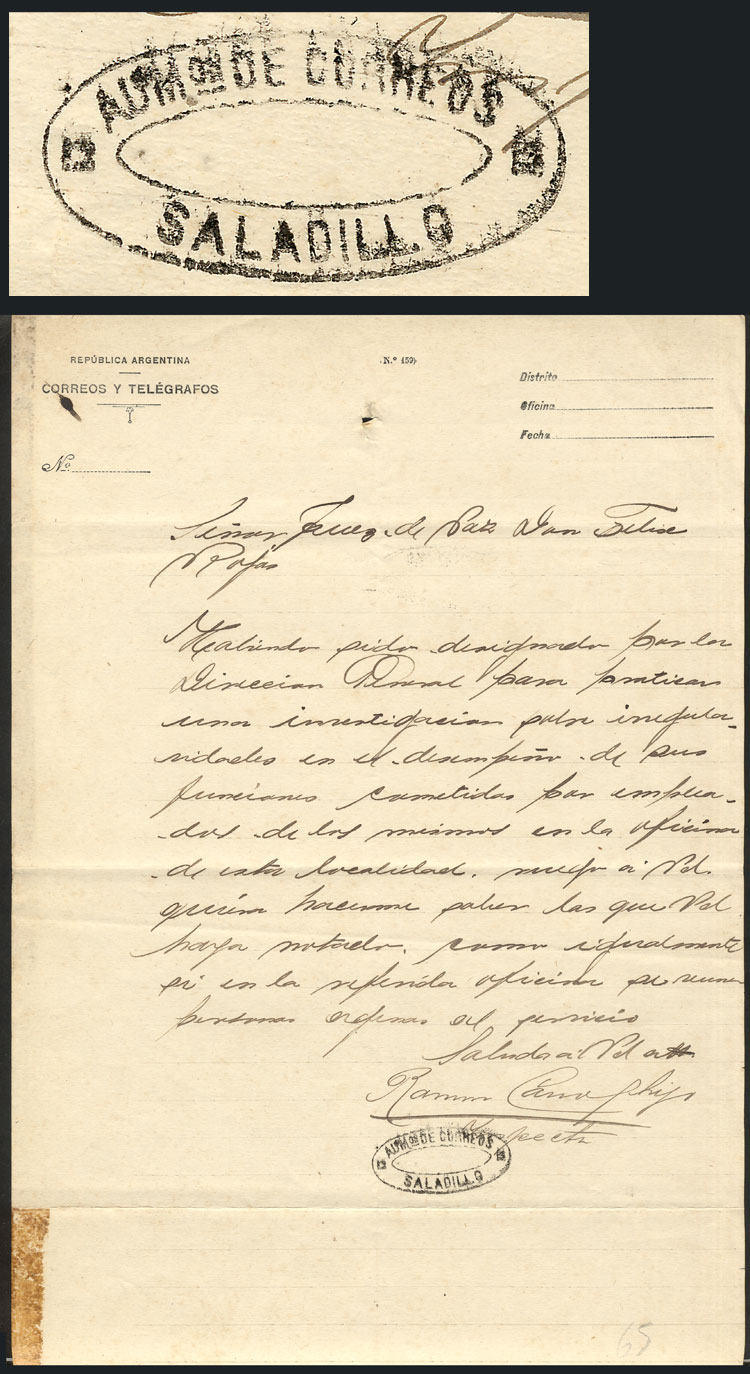 ADMon DE CORREOS
SALADILLO
REPÚBLICA ARGENTINA
CORREOS Y TELÉGRAFOS
N.º 159
Distrito
Oficina
Fecha
No.
Señor Juez de Paz Don Felix
Rojas
Habiendo sido designado por la
Direccion General para praticar
una investigacion sobre iregula-
ridades en el desempeño de sus
funciones cometidas por emplea-
dos de los mismos en la oficina
de esta localidad, ruego a Vd.
quiera hacerme saber las que Vd
haya notado, como igualmente
si en la referida oficina se reunen
personas agenas al servicio
Saludo a Vd att.
Ramon Cano hijo
Inspector
ADMon DE CORREOS
SALADILLO
65